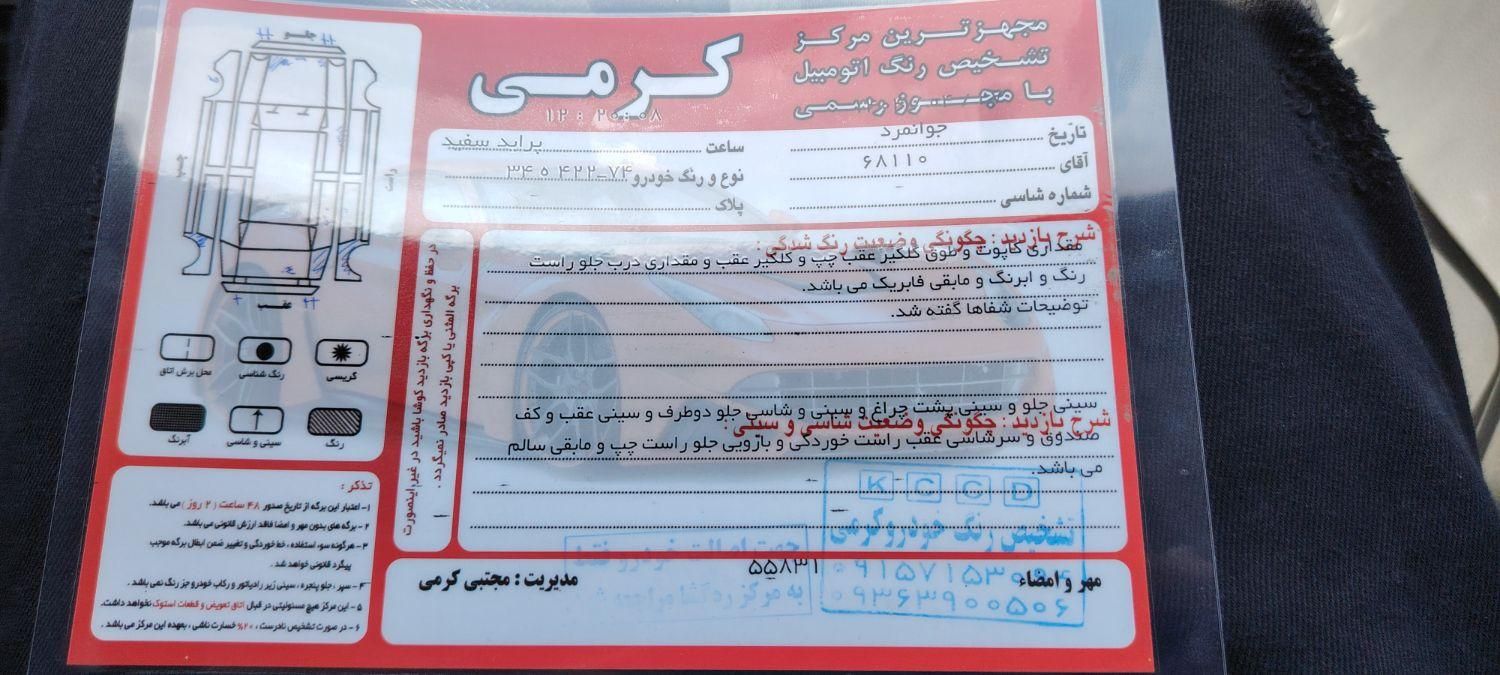 مجهزترین مرکز
تشخیص رنگ اتومبیل
با مجوز رسمی
کرمی
۱۲ : ۲۰:۰۸
تاریخ
جوانمرد
ساعت
پراید سفید
آقای
۶۸۱۱۰
نوع و رنگ خودرو
۷۴-۴۲۲ ۵ ۳۴
شماره شاسی
پلاک
شرح بازدید : چگونگی وضعیت رنگ شدگی :
مقداری کاپوت و طوق گلگیر عقب چپ و گلگیر عقب و مقداری درب جلو راست
رنگ و ابرنگ و مابقی فابریک می باشد.
توضیحات شفاها گفته شد.
سینی جلو و سینی پشت چراغ و سینی و شاسی جلو دوطرف و سینی عقب و کف
شرح بازدید : چگونگی وضعیت شاسی و سینی :
صندوق و سرشاسی عقب راست خوردگی و بازویی جلو راست چپ و مابقی سالم
می باشد.
در حفظ و نگهداری برگه بازدید کوشا باشید در غیر اینصورت
برگه المثنی یا کپی بازدید صادر نمیگردد .
جلو
چپ
راست
عقب
گریسی
رنگ شناسی
محل برش اتاق
رنگ
سینی و شاسی
آبرنگ
تذکر :
۱- اعتبار این برگه از تاریخ صدور ۴۸ ساعت ( ۲ روز ) می باشد.
۲- برگه های بدون مهر و امضا فاقد ارزش قانونی می باشد.
۳- هرگونه سوء استفاده ، خط خوردگی و تغییر ضمن ابطال برگه موجب
پیگرد قانونی خواهد شد .
۴- سپر ، جلو پنجره ، سینی زیر رادیاتور و رکاب خودرو جز رنگ نمی باشد .
۵- این مرکز هیچ مسئولیتی در قبال اتاق تعویض و قطعات استوک نخواهد داشت.
۶- در صورت تشخیص نادرست ، ۲۰% خسارت ناشی ، بعهده این مرکز می باشد .
مهر و امضاء
۵۵۸۳۱
مدیریت : مجتبی کرمی
K C C D
تشخیص رنگ خودرو کرمی
۰۹۳۶۳۹۰۰۵۰۶
جهت اصالت خودرو فقط
به مرکز ره‌گشا مراجعه